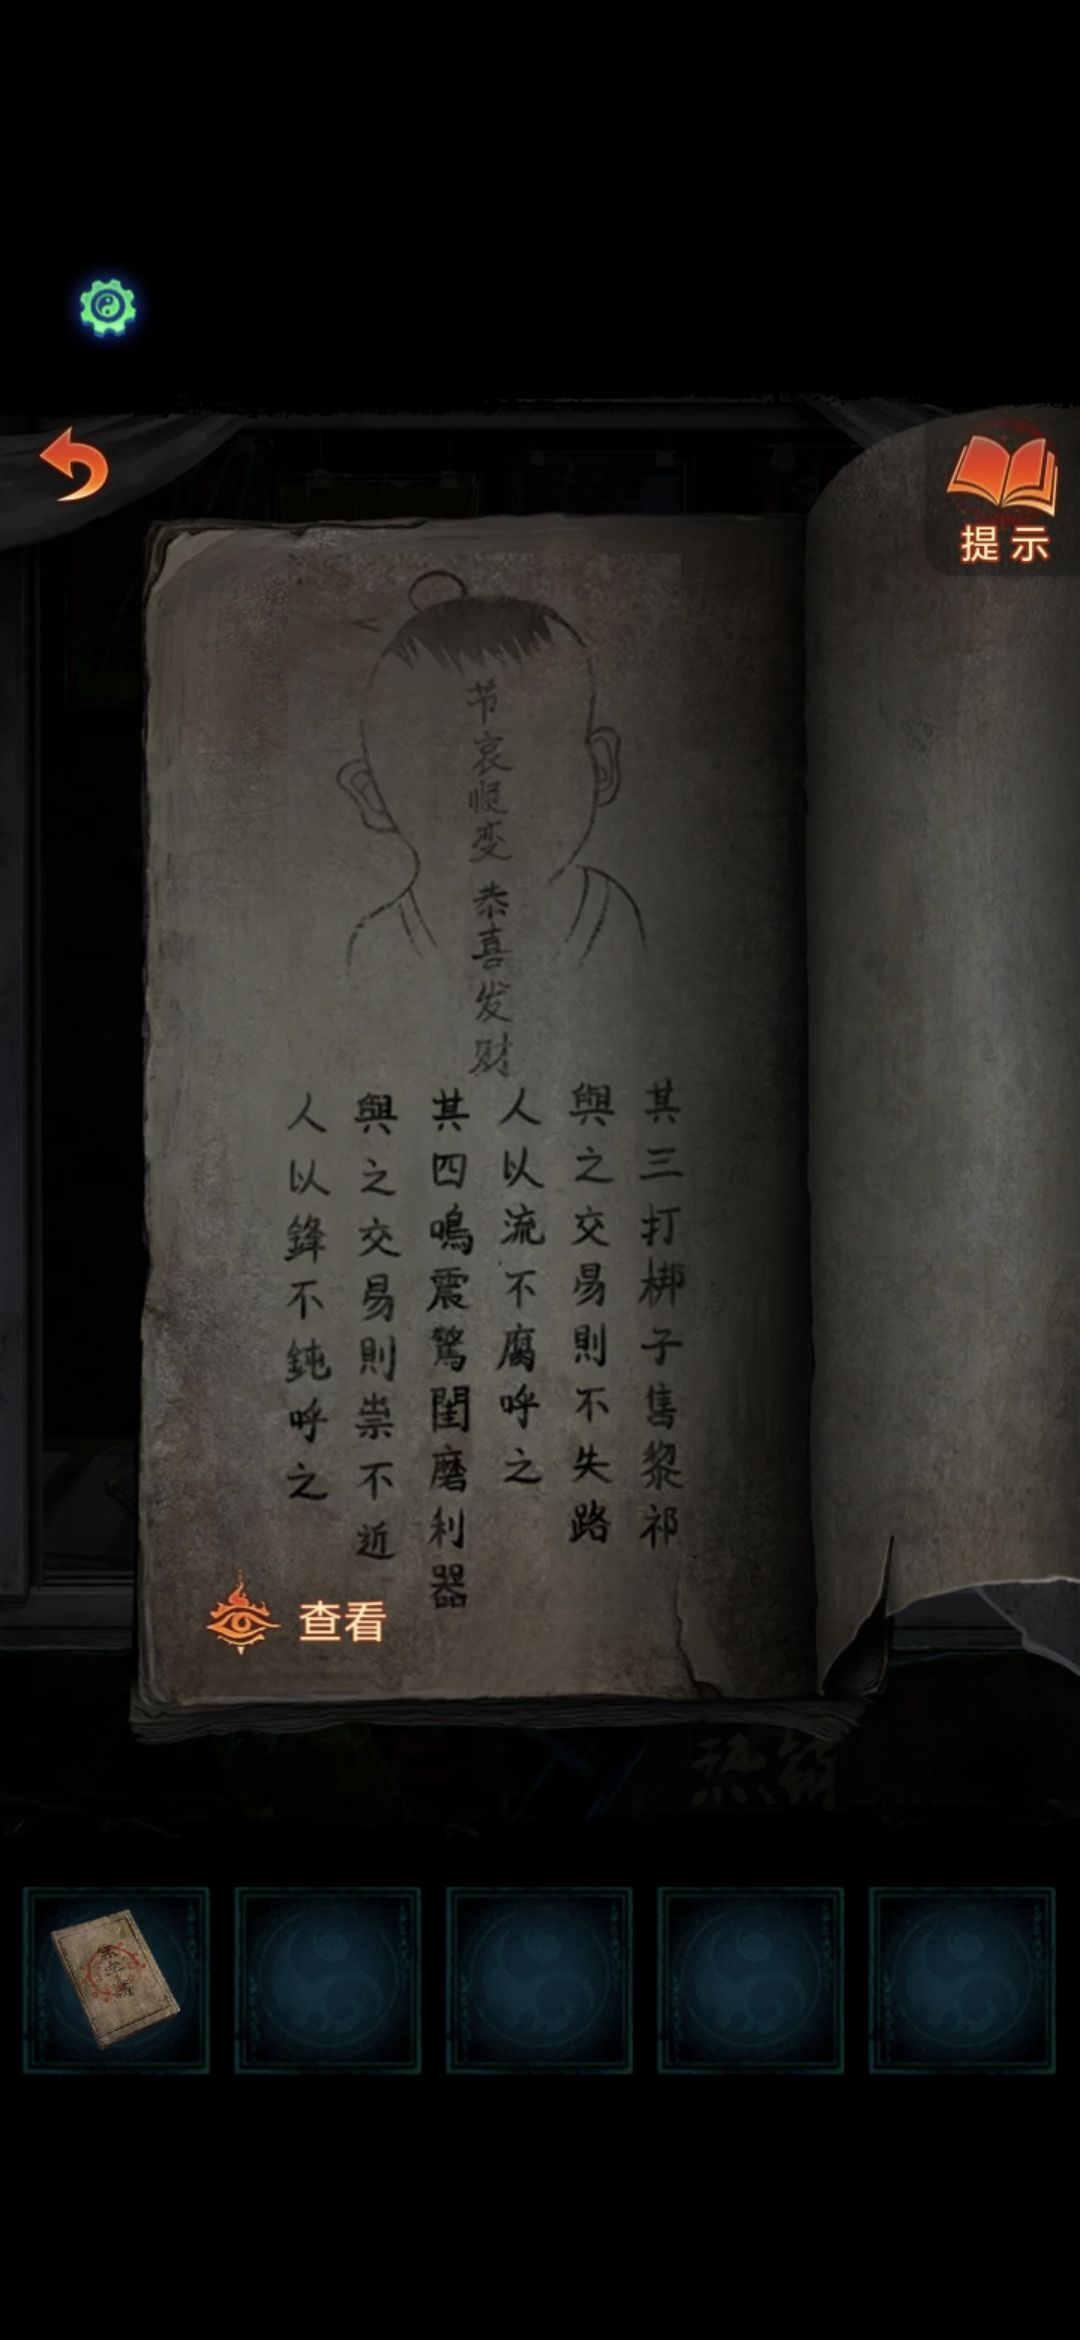 提示
节哀顺变 恭喜发财
其三打梆子售黎祁
與之交易則不失路
人以流不腐呼之
其四鳴震驚閨磨利器
與之交易則祟不近
人以鋒不鈍呼之
查看
热销